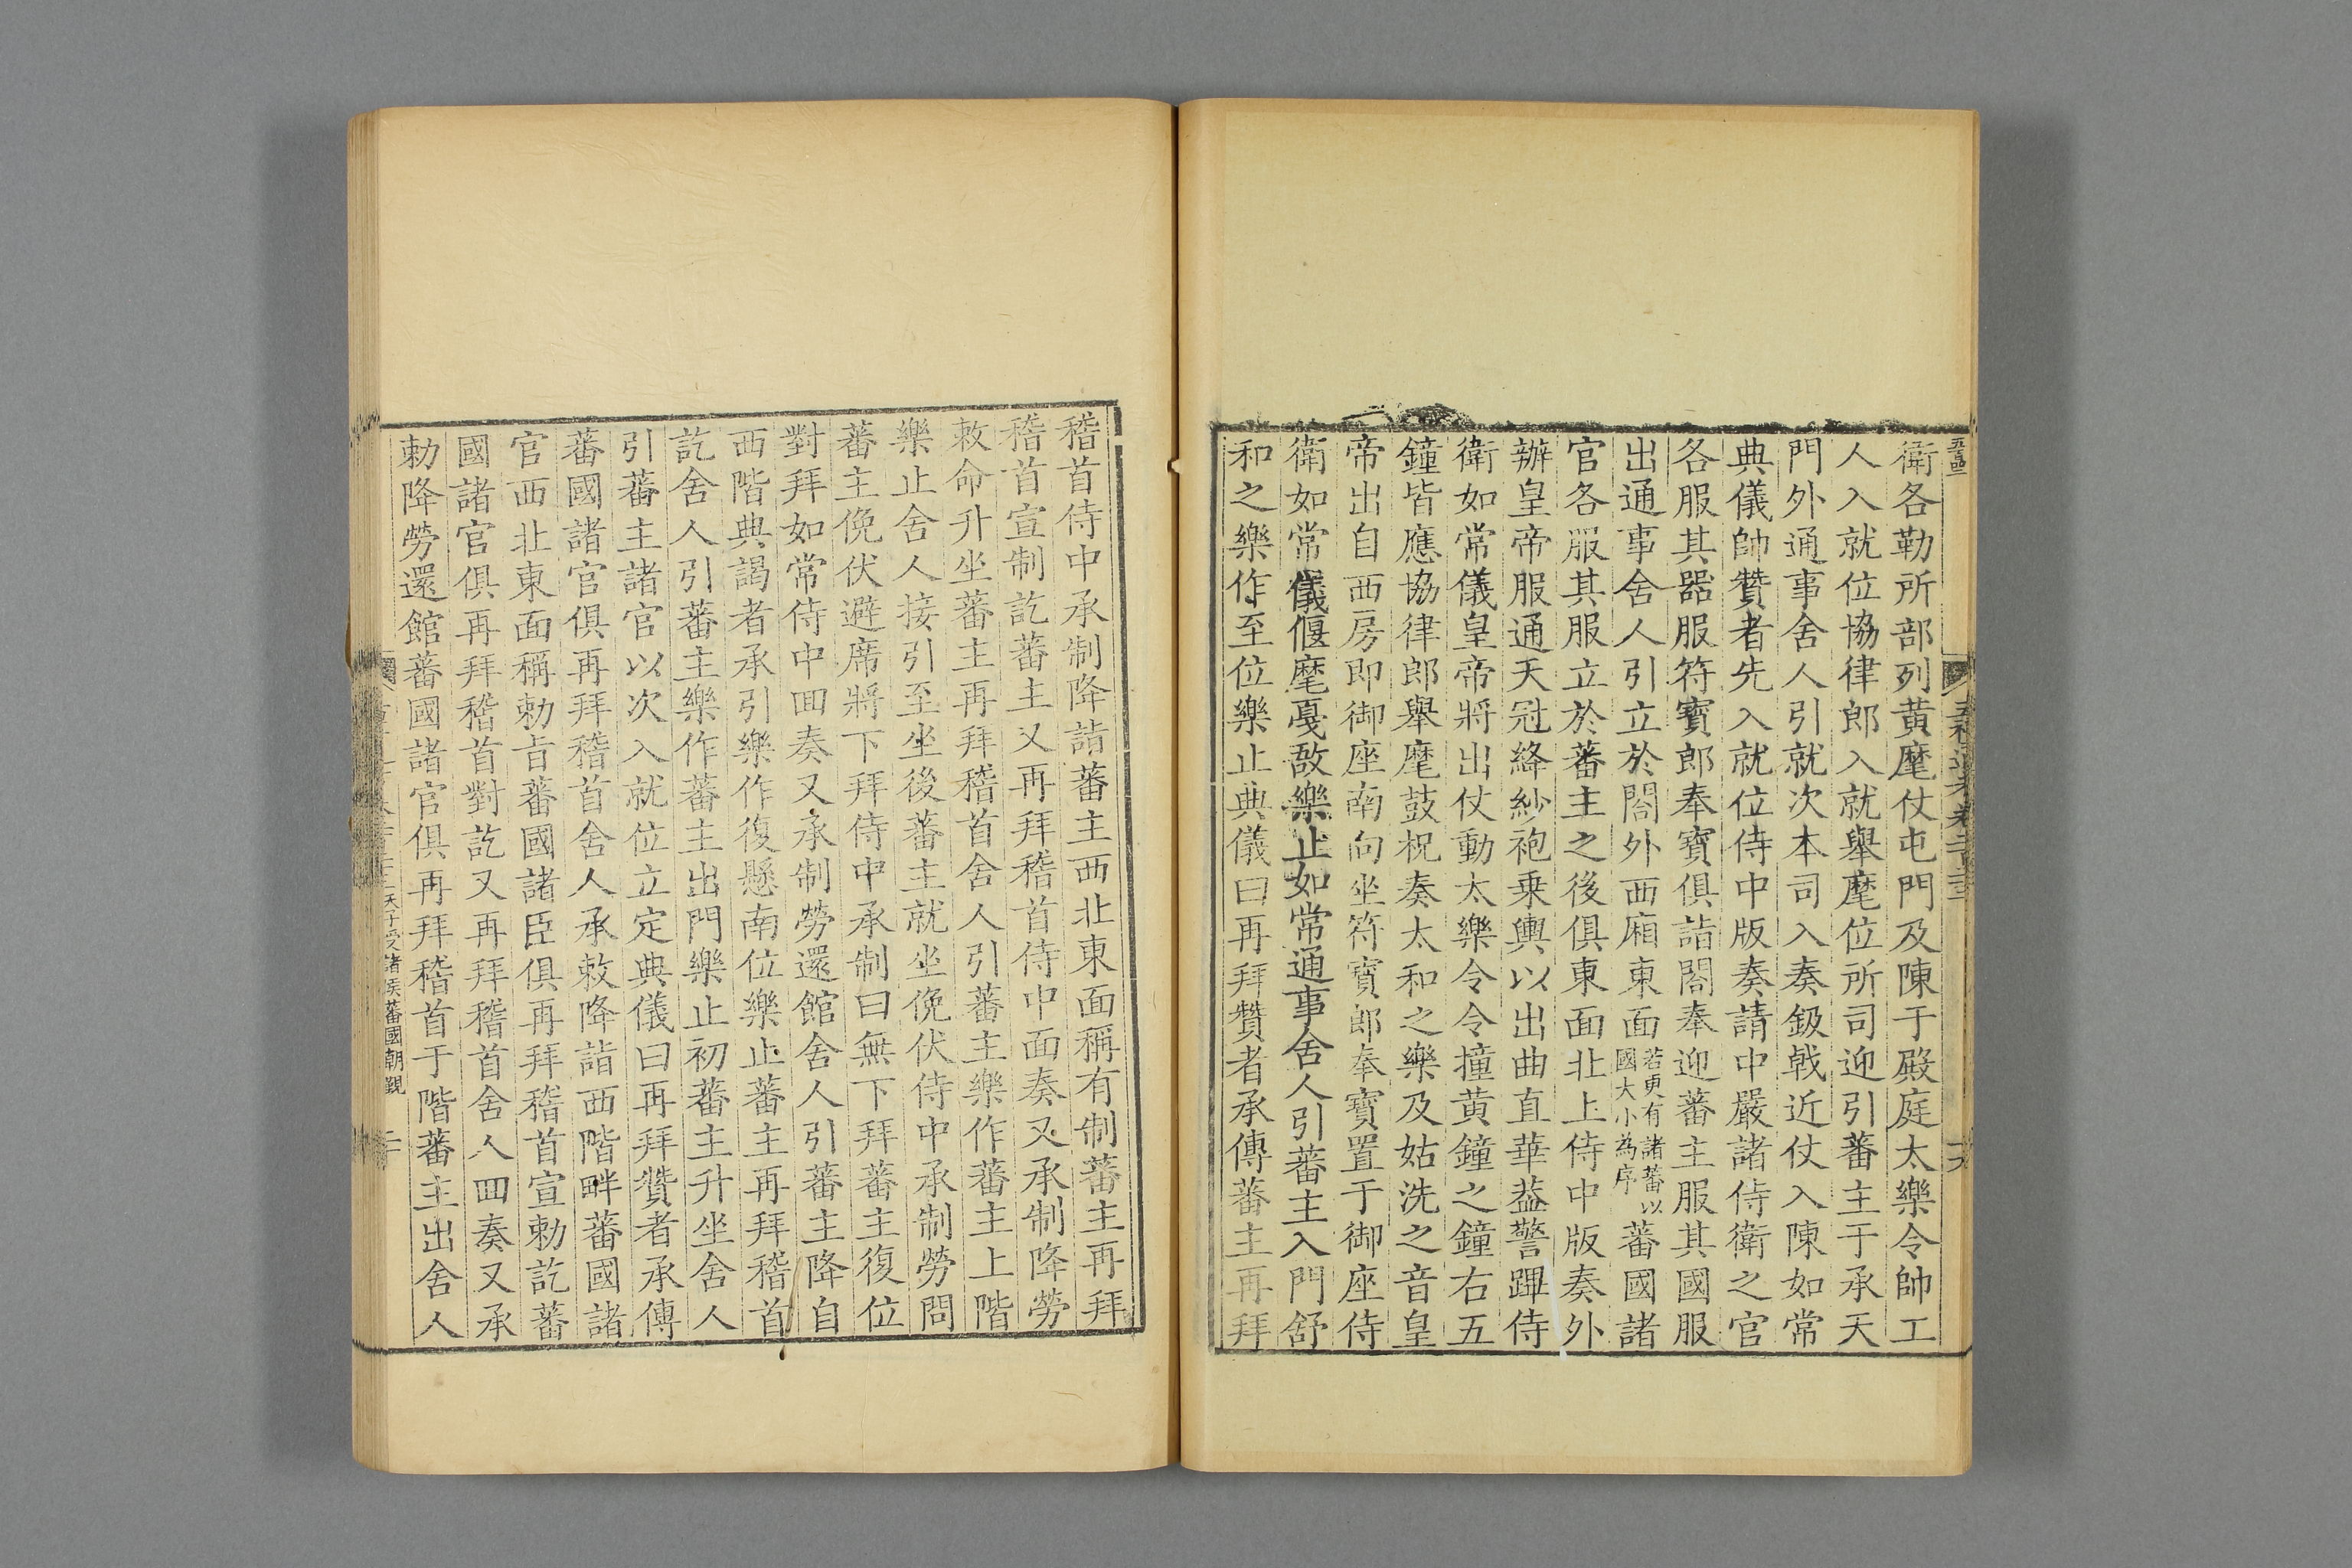 衛各勒所部列黄麾仗屯門及陳于殿庭太樂令帥工
人入就位協律郎入就舉麾位所司迎引蕃主于承天
門外通事舍人引就次本司入奏鈒戟近仗入陳如常
典儀帥贊者先入就位侍中版奏請中嚴諸侍衛之官
各服其器服符寶郎奉寶俱詣閤奉迎蕃主服其國服
出通事舍人引立於閤外西廂東面若更有諸蕃以國大小為序蕃國諸
官各服其服立於蕃主之後俱東面北上侍中版奏外
辦皇帝服通天冠絳紗袍乗輿以出曲直華葢警蹕侍
衛如常儀皇帝將出仗動太樂令令撞黄鐘之鐘右五
鐘皆應協律郎舉麾鼓柷奏太和之樂及姑洗之音皇
帝出自西房即御座南向坐符寶郎奉寶置于御座侍
衛如常儀偃麾戛敔樂止如常通事舍人引蕃主入門舒
和之樂作至位樂止典儀曰再拜贊者承傳蕃主再拜
稽首侍中承制降詣蕃主西北東面稱有制蕃主再拜
稽首宣制訖蕃主又再拜稽首侍中面奏又承制降勞
敕命升坐蕃主再拜稽首舍人引蕃主樂作蕃主上階
樂止舍人接引至坐後蕃主就坐俛伏侍中承制勞問
蕃主俛伏避席將下拜侍中承制曰無下拜蕃主復位
對拜如常侍中囬奏又承制勞還館舍人引蕃主降自
西階典謁者承引樂作復懸南位樂止蕃主再拜稽首
訖舍人引蕃主樂作蕃主出門樂止初蕃主升坐舍人
引蕃主諸官以次入就位立定典儀曰再拜贊者承傳
蕃國諸官俱再拜稽首舍人承敕降詣西階畔蕃國諸
官西北東面稱勅㫖蕃國諸臣俱再拜稽首宣勅訖蕃
國諸官俱再拜稽首對訖又再拜稽首舍人囬奏又承
勅降勞還館蕃國諸官俱再拜稽首于階蕃主出舍人
天子受諸侯蕃國朝覲